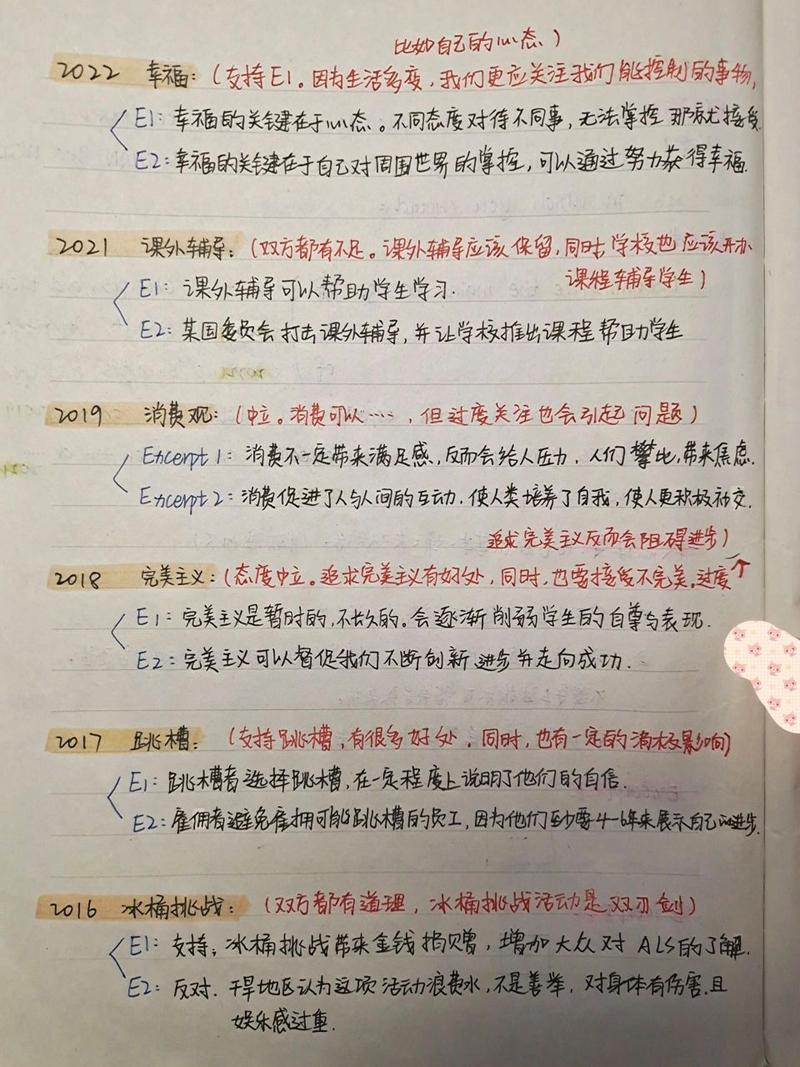 比如自己的心态）
2022 幸福：（支持E1。因为生活多变，我们更应关注我们能控制的事物，
E1：幸福的关键在于心态。不同态度对待不同事，无法掌控那就接受.
E2：幸福的关键在于自己对周围世界的掌控，可以通过努力获得幸福.
2021 课外辅导：（双方都有不足。课外辅导应该保留，同时学校也应该开办
课程辅导学生）
E1：课外辅导可以帮助学生学习.
E2：某国委员会打击课外辅导，并让学校推出课程帮助学生
2019 消费观：（中立。消费可以……，但过度关注也会引起问题）
Excerpt 1：消费不一定带来满足感，反而会给人压力，人们攀比，带来焦虑.
Excerpt 2：消费促进了人与人间的互动.使人类培养了自我，使人更积极社交.
追求完美主义反而会阻碍进步）
2018 完美主义：（态度中立。追求完美主义有好处，同时，也要接受不完美.过度↑
E1：完美主义是暂时的，不长久的。会逐渐削弱学生的自尊与表现.
E2：完美主义可以督促我们不断创新进步并走向成功.
2017 跳槽：（支持跳槽，有很多好处，同时，也有一定的消极影响）
E1：跳槽者选择跳槽，在一定程度上说明了他们的自信.
E2：雇佣者避免雇拥可能跳槽的员工，因为他们至少要4-6年来展示自己的进步.
2016 冰桶挑战：（双方都有道理，冰桶挑战活动是双刃剑）
E1：支持，冰桶挑战带来金钱捐赠，增加大众对ALS的了解.
E2：反对.干旱地区认为这项活动浪费水，不是善举，对身体有伤害.且
娱乐感过重.